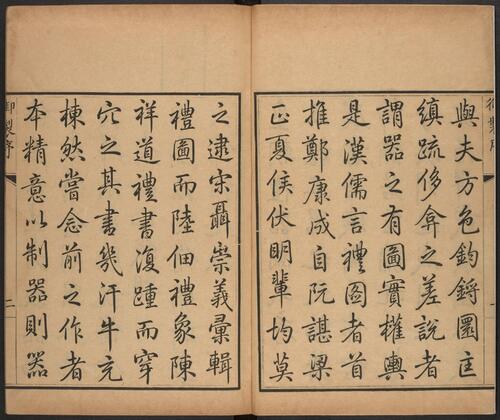 與夫方色鈞鎛圜匡
縝疏侈弇之差說者
謂器之有圖實權輿
是漢儒言禮圖者首
推鄭康成自阮諶梁
正夏侯伏明輩均莫
之逮宋聶崇義彙輯
禮圖而陸佃禮象陳
祥道禮書復踵而穿
穴之其書幾汗牛充
棟然嘗念前之作者
本精意以制器則器
御製序
二